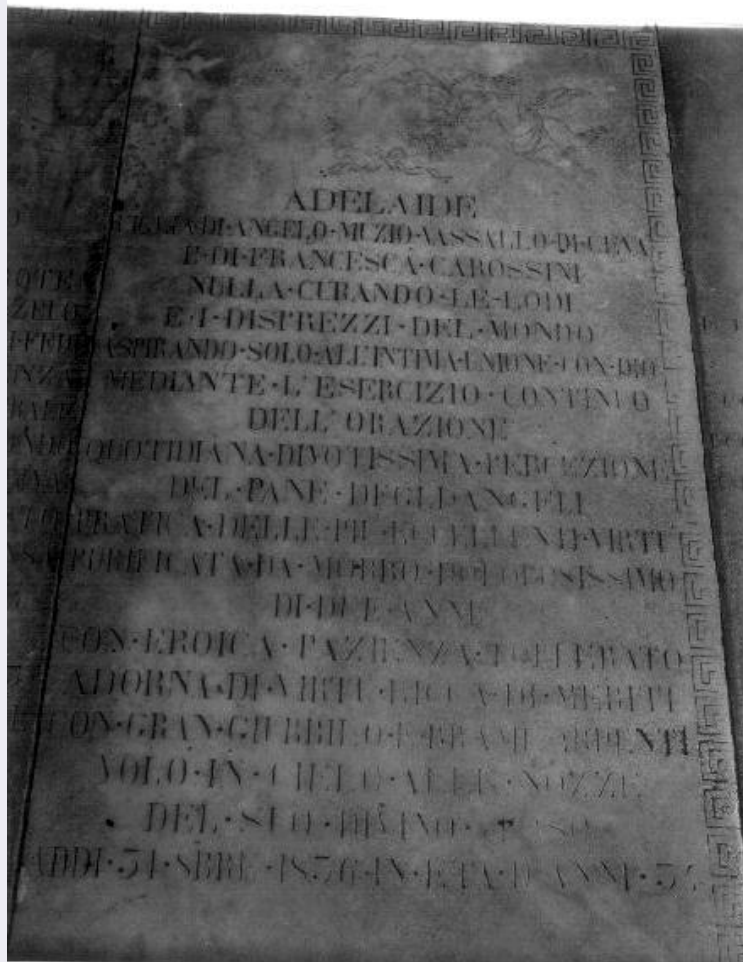 ADELAIDE
FILIA·DI·ANGELO·MUZIO·VASSALLO·DI·CEVA
E·DI·FRANCESCA·CAROSSINI
NULLA·CURANDO·LE·LODI
E·I·DISPREZZI·DEL·MONDO
ASPIRANDO·SOLO·ALL'INTIMA·UNIONE·CON·DIO
MEDIANTE·L'ESERCIZIO·CONTINUO
DELL'ORAZIONE
QUOTIDIANA·DIVOTISSIMA·PERCEZIONE
DEL·PANE·DEGLI·ANGELI
PRATICA·DELLE·PIU·ECCELLENTI·VIRTU
PURIFICATA·DA·MORBO·DOLOROSISSIMO
DI·DUE·ANNI
CON·EROICA·PAZIENZA·TOLLERATO
ADORNA·DI·VIRTU·RICCA·DI·MERITI
CON·GRAN·GIUBBILO·E·BRAME·ARDENTI
VOLO·IN·CIELO·ALLE·NOZZE
DEL·SUO·DIVINO·SPOSO
ADDI·31·8BRE·1836·IN·ETA·D'ANNI